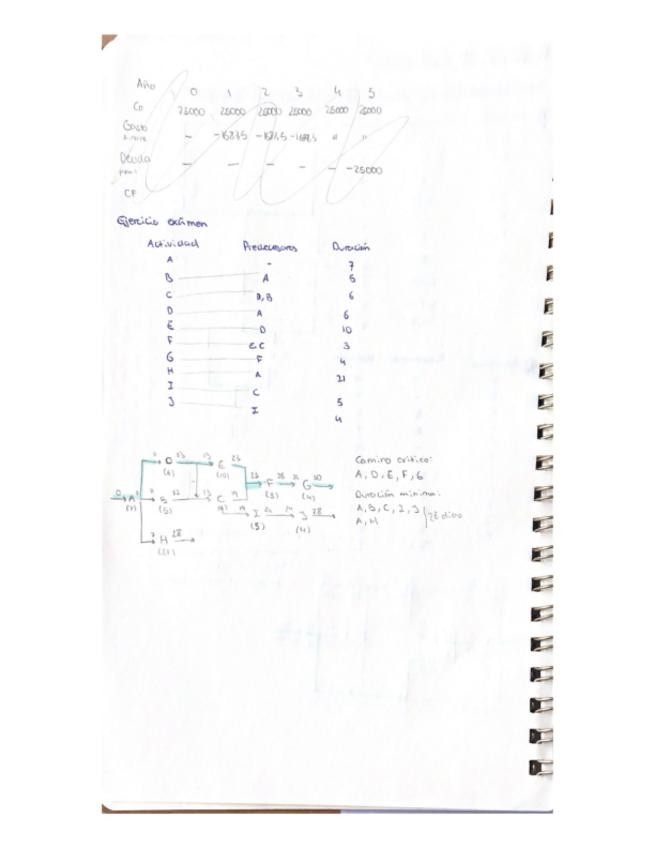 Año 0 1 2 3 4 5
Co 25000 25000 25000 25000 25000 25000
Gasto - -1687,5 -1687,5 -1687,5 " "
Deuda - - - - - -25000
CF
Ejercicio exámen
Actividad Predecesores Duración
A - 7
B A 5
C D,B 6
D A 6
E D 10
F E,C 3
G F 4
H A 21
I C 5
J I 4
D 13 13 E 23
(6) (10)
0 A 7 B 12 13 C 19 23 F 26 26 G 30
(7) (5) (3) (4)
19 19 I 24 24 J 28
(5) (4)
7 H 28
(21)
Camino crítico:
A, D, E, F, G
Duración mínima:
A, B, C, I, J
A, H
28 días